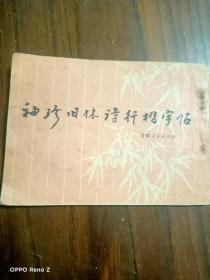 袖珍旧体诗行楷字帖
甘肃人民出版社
OPPO Reno Z